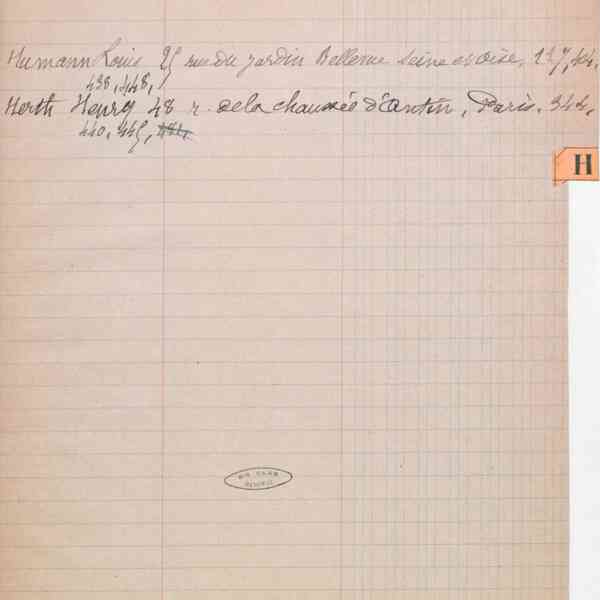 Humann Louis 25 rue du jardin Bellevue Seine et Oise, 127, 44.
438, 448,
Herth Henry 48 r. de la chaussée d'Antin, Paris. 344,
440, 445,
H